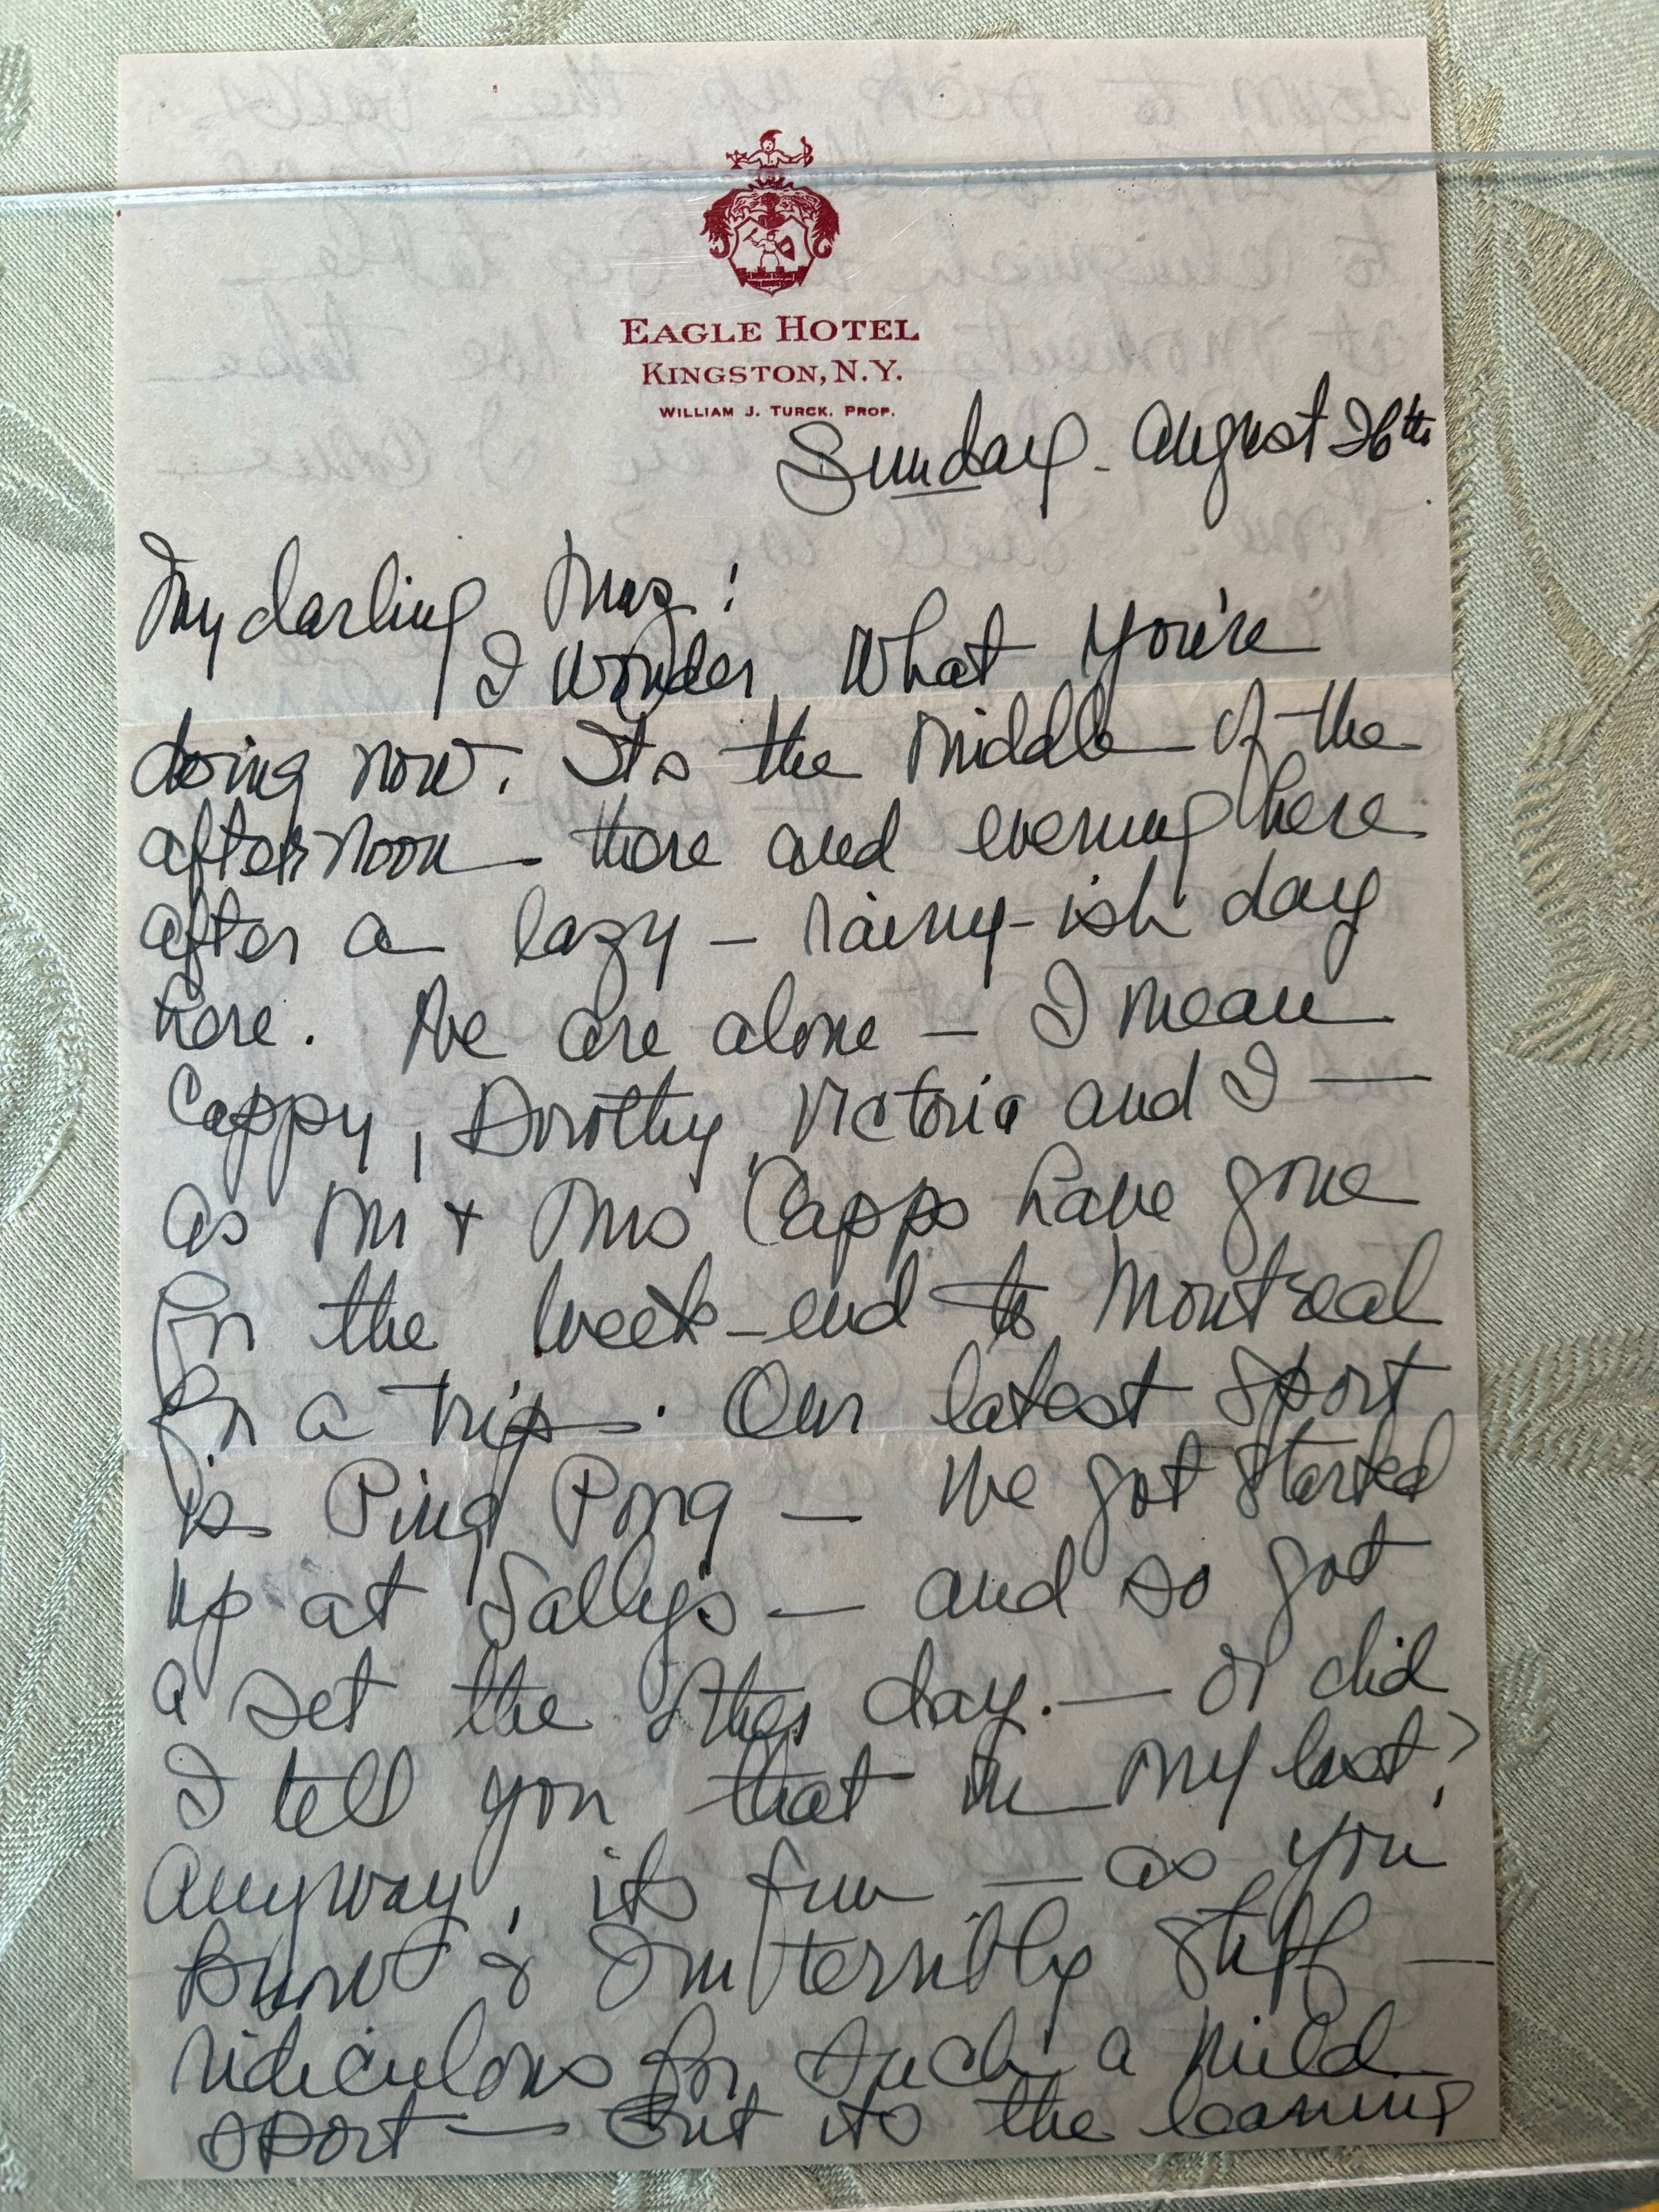 EAGLE HOTEL
KINGSTON, N.Y.
WILLIAM J. TURCK, PROP.
Sunday - August 26th
My darling Muz!
I wonder what you're
doing now. Its the middle of the
afternoon there and evening here
after a lazy - rainy-ish day
here. We are alone - I mean
Cappy, Dorothy, Victoria and I —
as Mr + Mrs Capps have gone
for the week-end to Montreal
for a trip. Our latest sport
is Ping Pong - We got started
up at Sally's - and so got
a set the other day. - or did
I tell you that in my last?
Anyway, its fun - as you
know & I'm terribly stiff -
ridiculous for such a mild
sport - But its the leaning